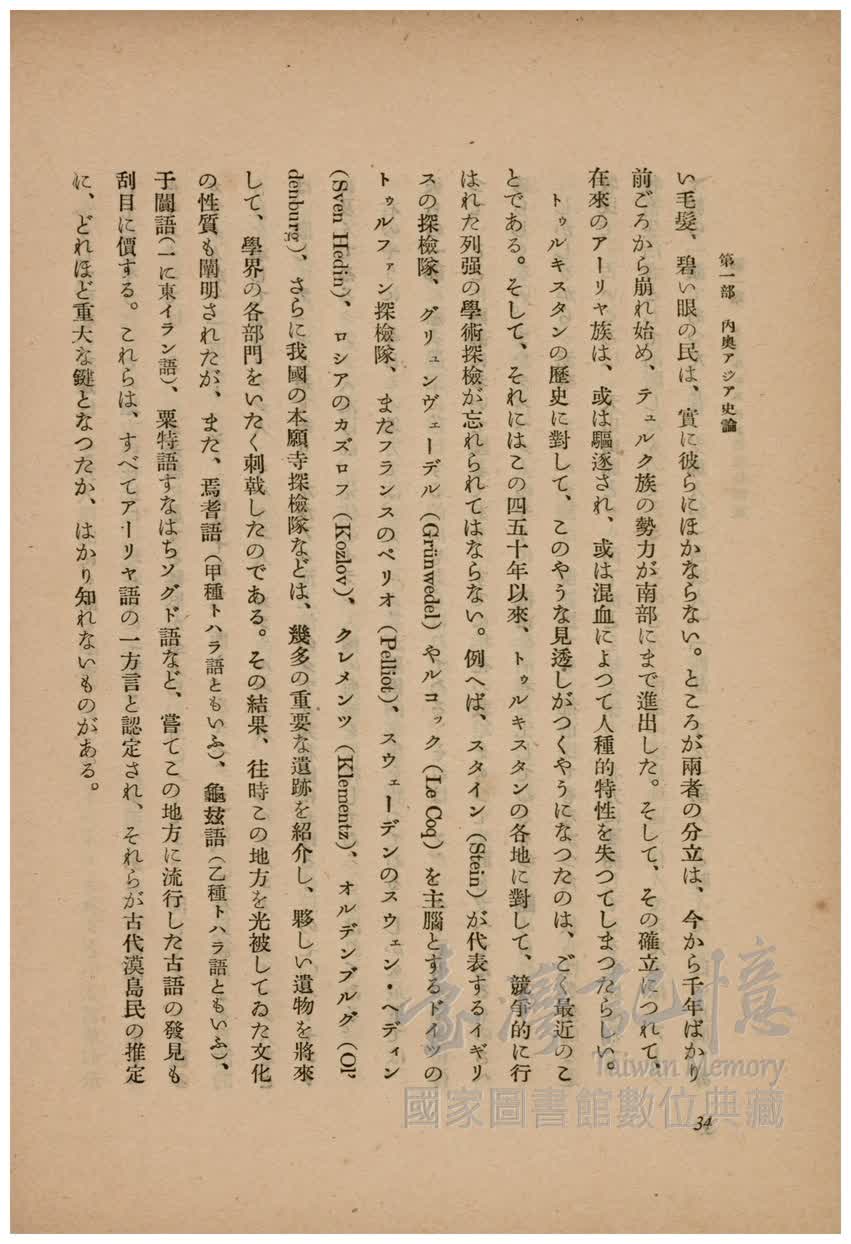 第一部　內奧アジア史論
い毛髮、碧い眼の民は、實に彼らにほかならない。ところが兩者の分立は、今から千年ばかり
前ごろから崩れ始め、テュルク族の勢力が南部にまで進出した。そして、その確立につれて、
在來のアーリヤ族は、或は驅逐され、或は混血によつて人種的特性を失つてしまつたらしい。
トゥルキスタンの歷史に對して、このやうな見透しがつくやうになつたのは、ごく最近のこ
とである。そして、それにはこの四五十年以來、トゥルキスタンの各地に對して、競爭的に行
はれた列强の學術探檢が忘れられてはならない。例へば、スタイン（Stein）が代表するイギリ
スの探檢隊、グリュンヴェーデル（Grünwedel）やルコック（Le Coq）を主腦とするドイツの
トゥルファン探檢隊、またフランスのペリオ（Pelliot）、スウェーデンのスウェン・ヘディン
（Sven Hedin）、ロシアのカズロフ（Kozlov）、クレメンツ（Klementz）、オルデンブルグ（Ol'
denburg）、さらに我國の本願寺探檢隊などは、幾多の重要な遺跡を紹介し、夥しい遺物を將來
して、學界の各部門をいたく刺戟したのである。その結果、往時この地方を光被してゐた文化
の性質も闡明されたが、また、焉耆語（甲種トハラ語ともいふ）、龜玆語（乙種トハラ語ともいふ）、
于闐語（一に東イラン語）、粟特語すなはちソグド語など、嘗てこの地方に流行した古語の發見も
刮目に價する。これらは、すべてアーリヤ語の一方言と認定され、それらが古代漠島民の推定
に、どれほど重大な鍵となつたか、はかり知れないものがある。
34
臺灣記憶
Taiwan Memory
國家圖書館數位典藏